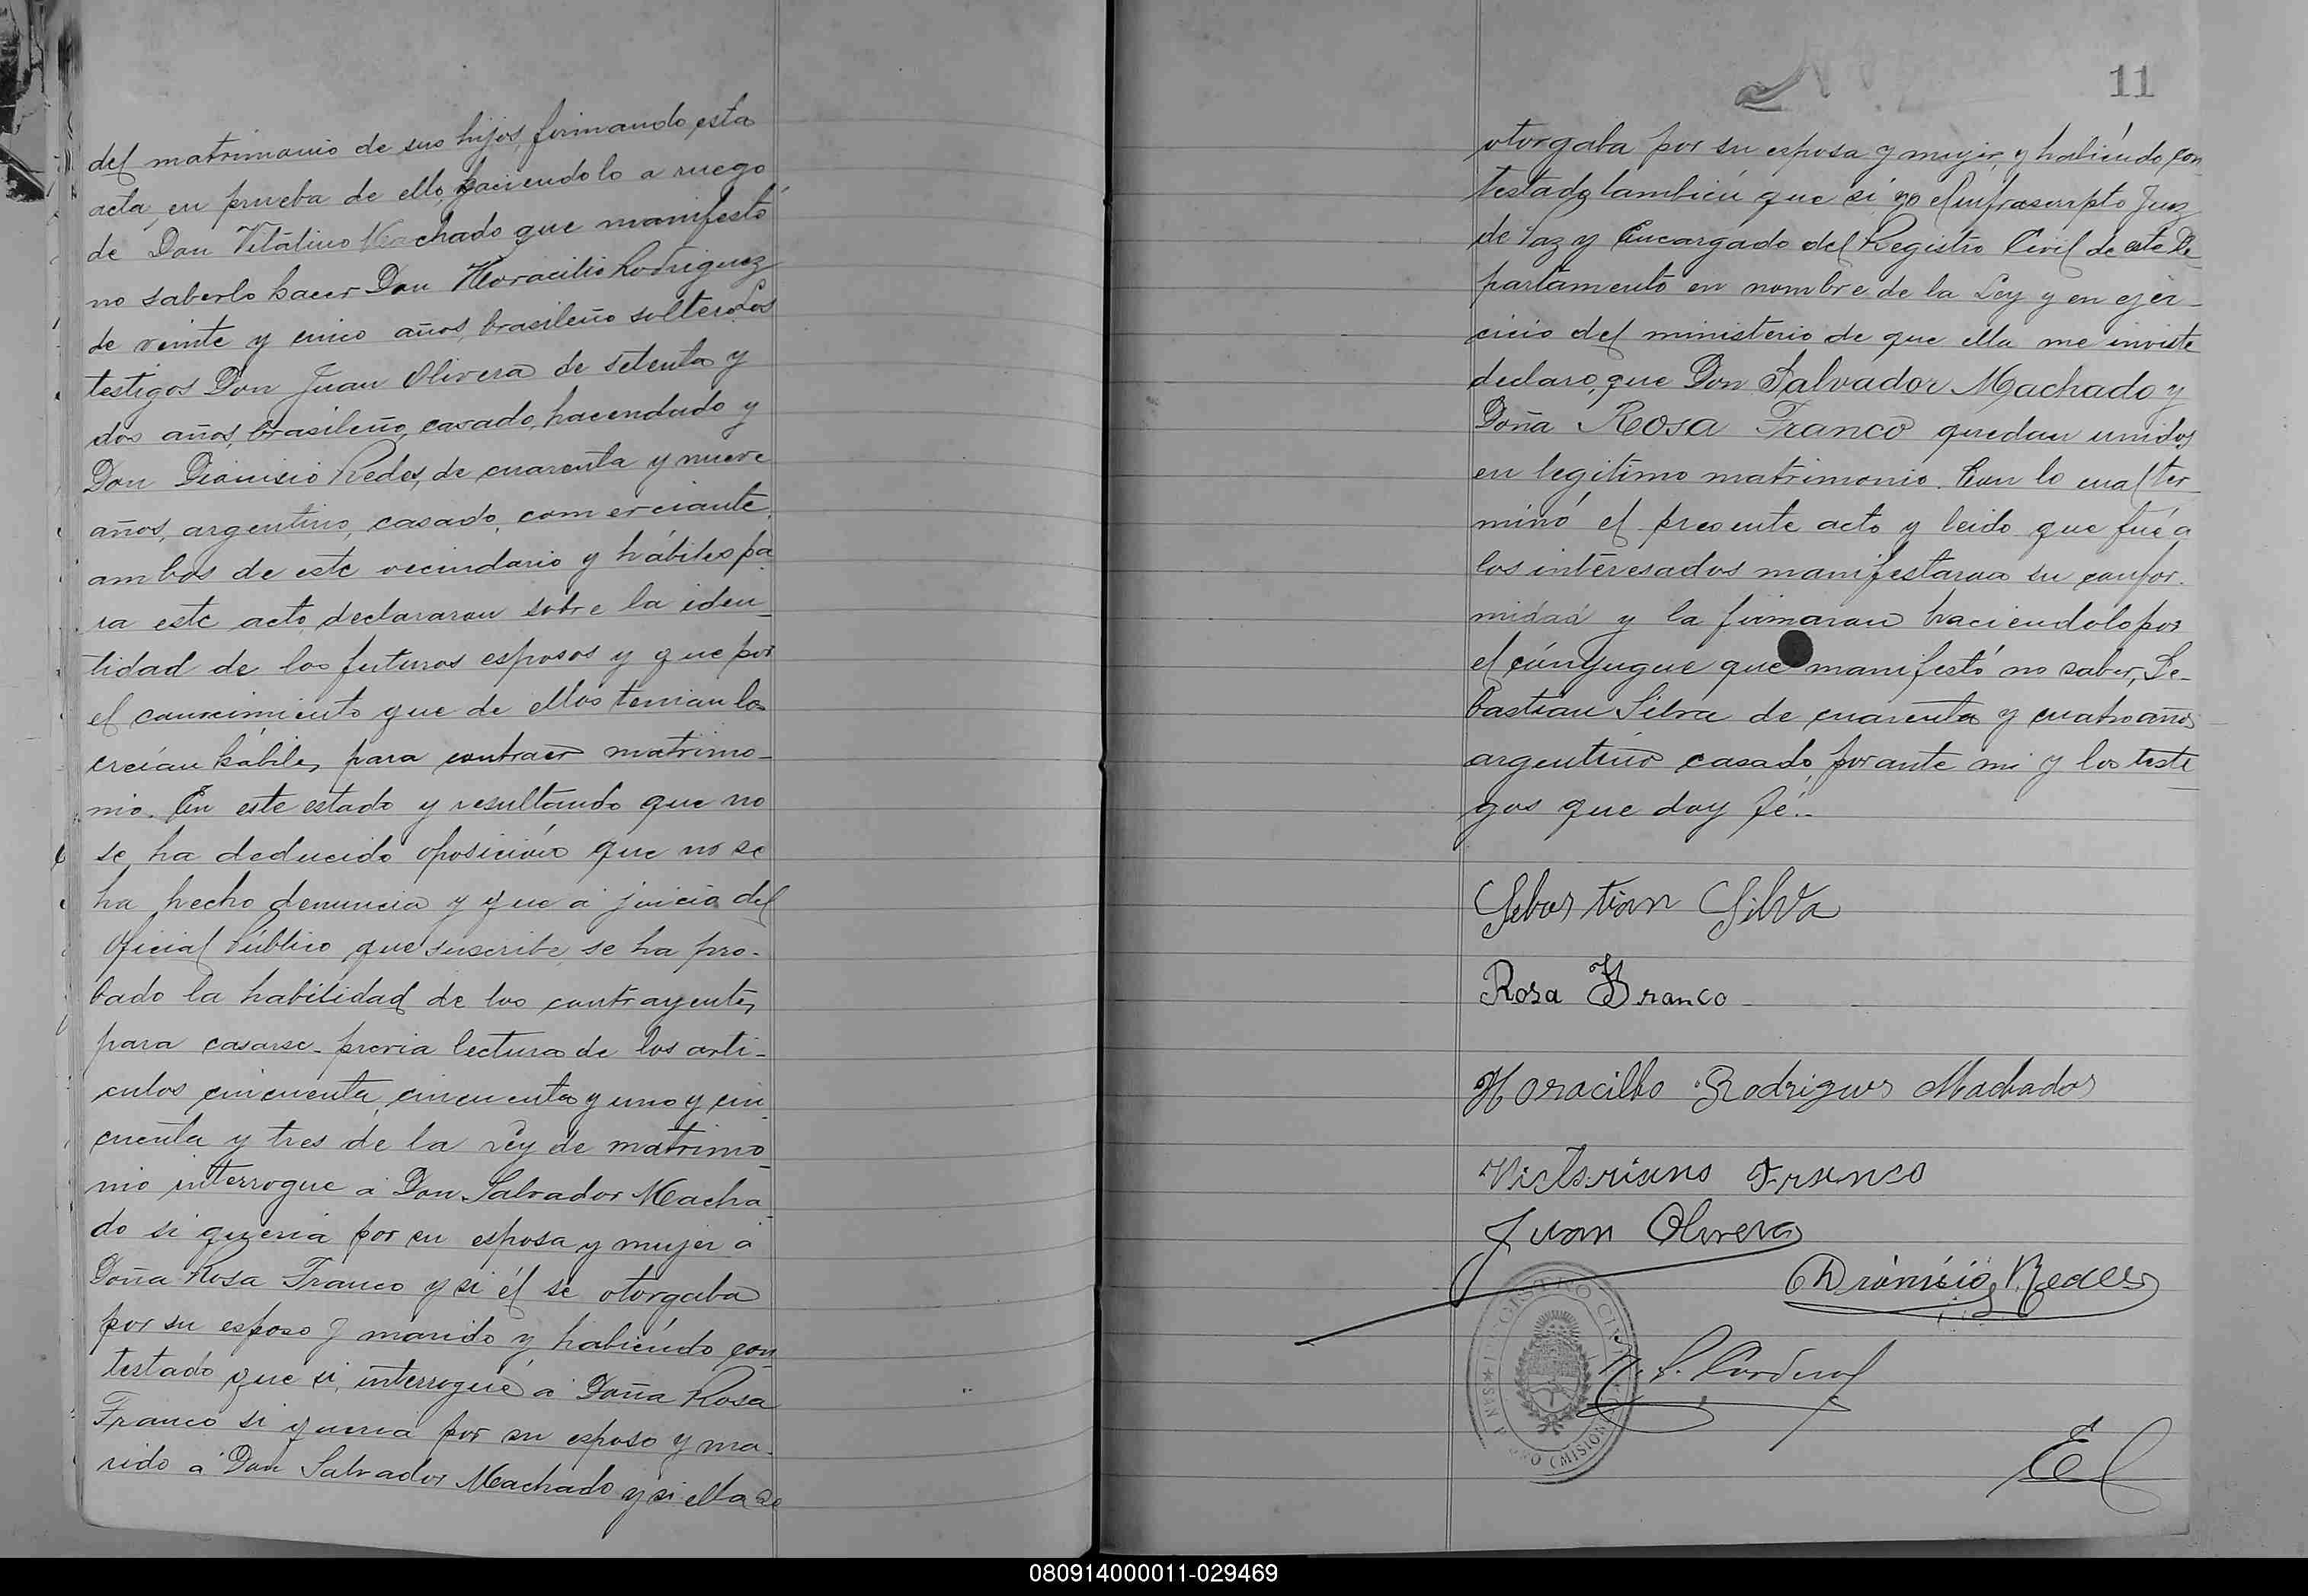 del matrimonio de sus hijos, firmando esta
acta, en prueba de ello, haciendolo a ruego
de Don Vitalino Machado que manifestó
no saberlo hacer Don Horacilio Rodriguez
de veinte y cinco años, brasileño soltero. Los
testigos Don Juan Olivera de setenta y
dos años, brasileño, casado, hacendado y
Don Dionisio Redes, de cuarenta y nueve
años, argentino, casado, comerciante,
ambos de este vecindario y hábiles pa
ra este acto, declararon sobre la iden_
tidad de los futuros esposos y que por
el conocimiento que de ellos tenian los
creían hábiles para contraer matrimo_
nio. En este estado y resultando que no
se ha deducido oposición que no se
ha hecho denuncia y que á juicio del
Oficial Público que suscribe, se ha pro-
bado la habilidad de los contrayentes
para casarse previa lectura de los arti-
culos cincuenta, cincuenta y uno y cin
cuenta y tres de la Ley de matrimo_
nio interrogue á Don Salvador Macha_
do si queria por su esposa y mujer á
Doña Rosa Franco y si él se otorgaba
por su esposo y marido y habiéndo con
testado que si, interrogué á Doña Rosa
Franco si queria por su esposo y ma-
rido a Don Salvador Machado y si ella se
11
otorgaba por su esposa y mujer, y habiéndo con
testado tambien que si yo el infrascripto Juez
de Paz y Encargado del Registro Civil de este De_
partamento en nombre de la Ley y en ejer_
cicio del ministerio de que ella me inviste
declaro, que Don Salvador Machado y
Doña Rosa Franco quedan unidos
en legitimo matrimonio. Con lo cual ter_
minó el presente acto y leido que fué a
los interesados manifestaron su confor-
midad y la firmaron haciendólo por
el cónyugue que manifestó no saber, Se-
bastian Silva de cuarenta y cuatro años
argentino casado, por ante mi y los testi_
gos que doy fé.-
Sebastian Silva
Rosa Franco
Horacilho Rodrigues Machados
Victoriano Franco
Juan Olivera
Dionisio Redes
REGISTRO CIVIL
MISIONES
080914000011-029469